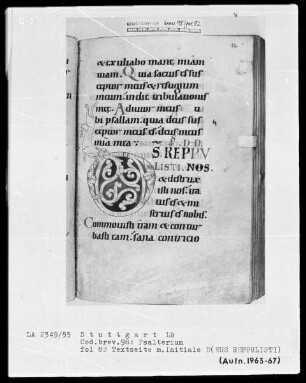 & exultabo mane miam
tuam. Quia factus es sus
ceptor meus & refugium
meum. in die tribulationis
mee. Adiutor meus
bi psallam. quia deus sus
ceptor meus es. deus meus
mia mea.
S. REPPV
LISTI. NOS.
& destrux
isti nos. ira
tus es & mi
sertus es nobis.
Commouisti tram & contur
basti eam. sana contricio
LA 2349/55 Stuttgart Lb
Cod.brev.98: Psalterium
fol 82 Textseite m.Initiale D(EUS REPPULISTI)
(Aufn.1963-67)